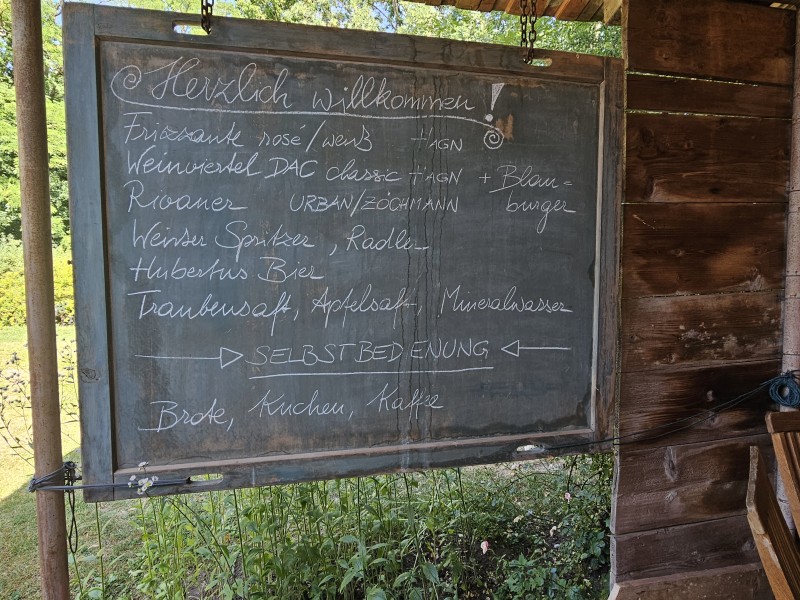 Herzlich willkommen!
Frizzante rosé/weiß HAGN
Weinviertel DAC classic HAGN + Blau=
Rivaner URBAN/ZÖCHMANN burger
Weisser Spritzer, Radler
Hubertus Bier
Traubensaft, Apfelsaft, Mineralwasser
SELBSTBEDIENUNG
Brote, Kuchen, Kaffe